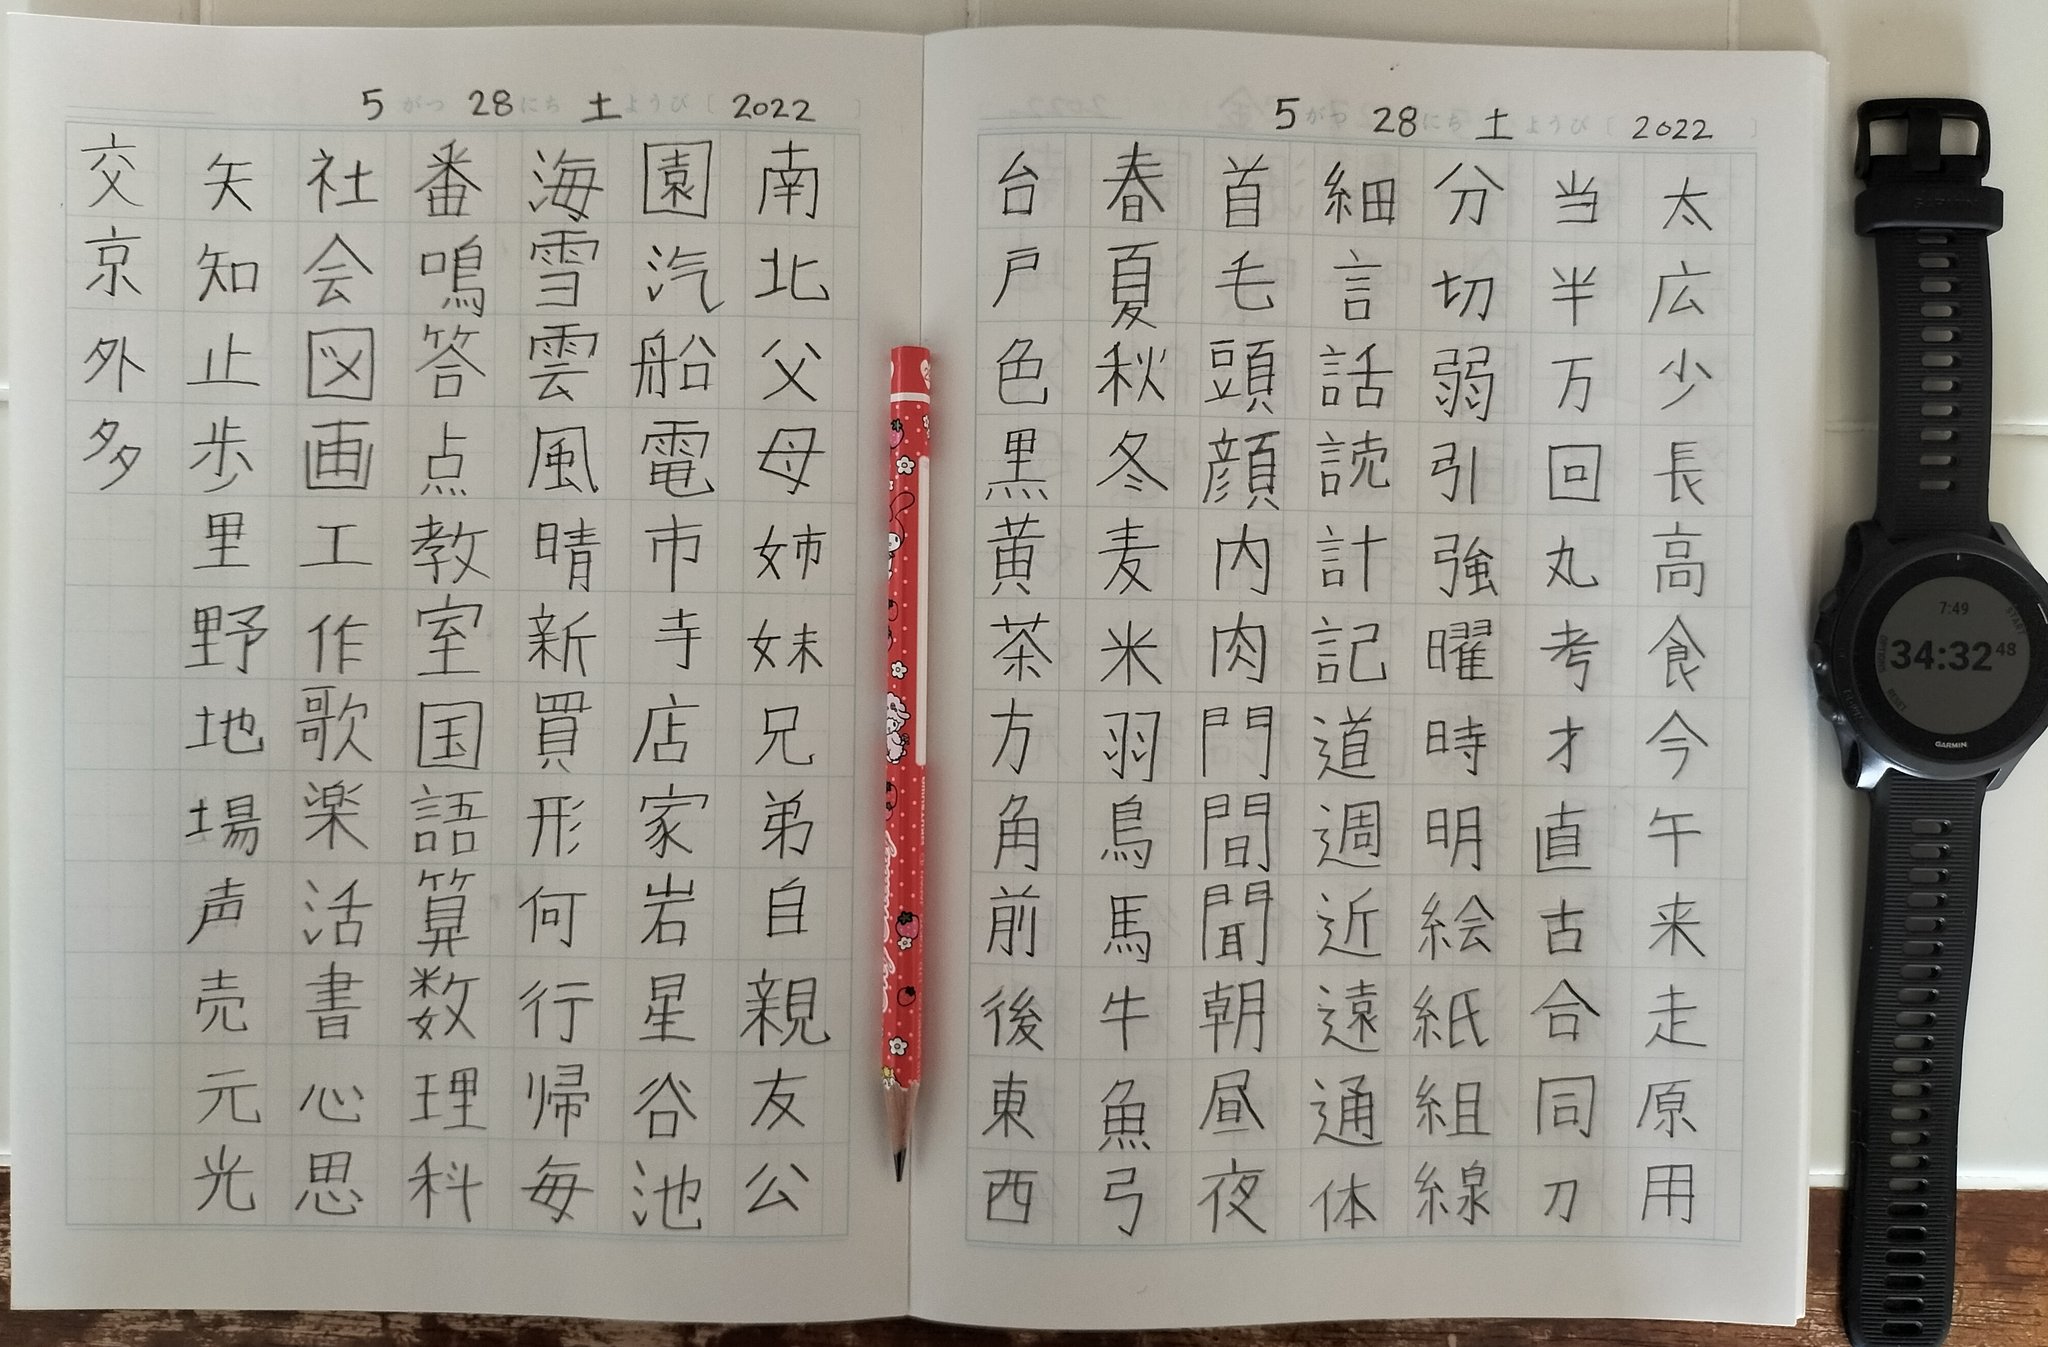 5がつ 28にち 土ようび〔 2022 〕
太広少長高食今午来走原用
当半万回丸考才直古合同刀
分切弱引強曜時明絵紙組線
細言話読計記道週近遠通体
首毛頭顔内肉門間聞朝昼夜
春夏秋冬麦米羽鳥馬牛魚弓
台戸色黒黄茶方角前後東西
5がつ 28にち 土ようび〔 2022 〕
南北父母姉妹兄弟自親友公
園汽船電市寺店家岩星谷池
海雪雲風晴新買形何行帰毎
番鳴答点教室国語算数理科
社会図画工作歌楽活書心思
矢知止歩里野地場声売元光
交京外多
GARMIN
7:49
START
34:32 48
RESET
GARMIN